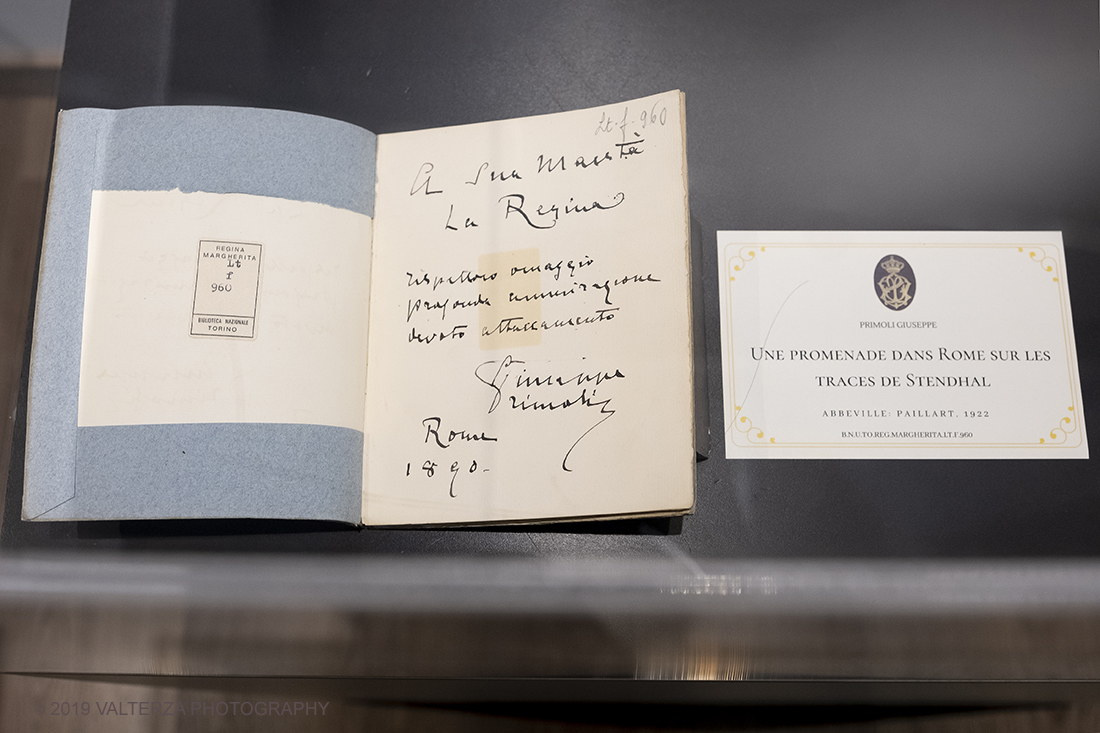 REGINA
MARGHERITA
Lt
f
960
BIBLIOTECA NAZIONALE
TORINO
Lt. f. 960
A Sua Maestà
La Regina
rispettoso omaggio
profonda ammirazione
devoto attaccamento
Giuseppe
Primoli
Rome
1890.
PRIMOLI GIUSEPPE
UNE PROMENADE DANS ROME SUR LES
TRACES DE STENDHAL
ABBEVILLE: PAILLART, 1922
B.N.U.TO.REG.MARGHERITA.LT.F.960
2019 VALTERZA PHOTOGRAPHY